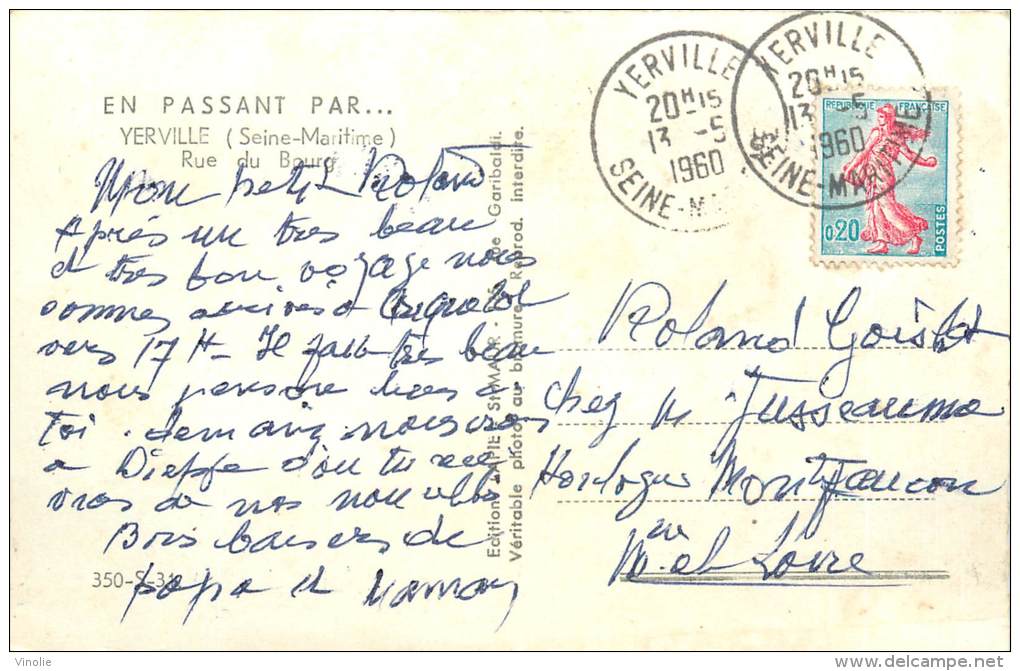 EN PASSANT PAR...
YERVILLE (Seine-Maritime)
Rue du Bourg
Mon petit Roland
Après un tres beau
et tres bon voyage nous
sommes arrivés à
vers 17 H - Il fait tres beau
nous pensons bien à
toi. demain nous irons
a Dieppe d'ou tu rece
vras de nos nouvelles
Bons baisers de
papa et maman
350-S-3
Editions LAPIE St-MAUR - Garibaldi.
Véritable photo au bromure - Reprod. interdite.
YERVILLE
20H15
13 -5
1960
SEINE-MA
YERVILLE
20H15
13 -5
1960
SEINE-MARITIME
REPUBLIQUE FRANÇAISE
0,20
POSTES
Roland
chez M Jusseaume
Horloger Montfaucon
M. et Loire
Vinolie
delcampe.net